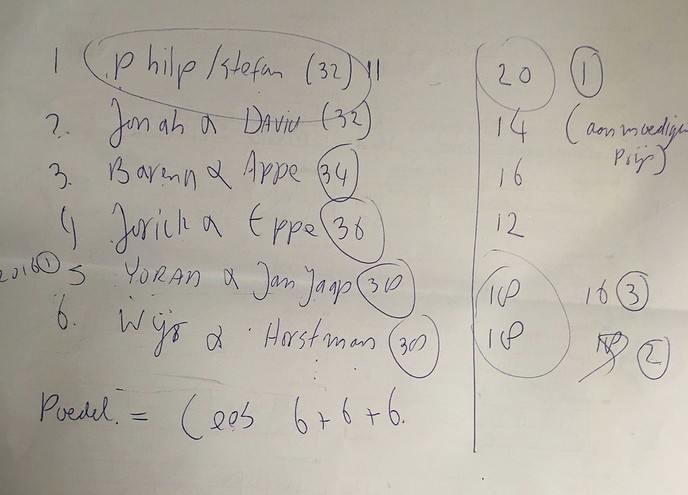 1 Philp/Stefan (32) 11 20 1
2. Jonah & DAVID (32) 14 (aanmoedigings
Prijs)
3. Barend & Appe 34 16
4 Jorick & Eppe 36 12
2016 1 5 YORAN & Jan Jaap 18 16 3
6. & Horstman 18 18 2
Poedel. = Cees 6+6+6.